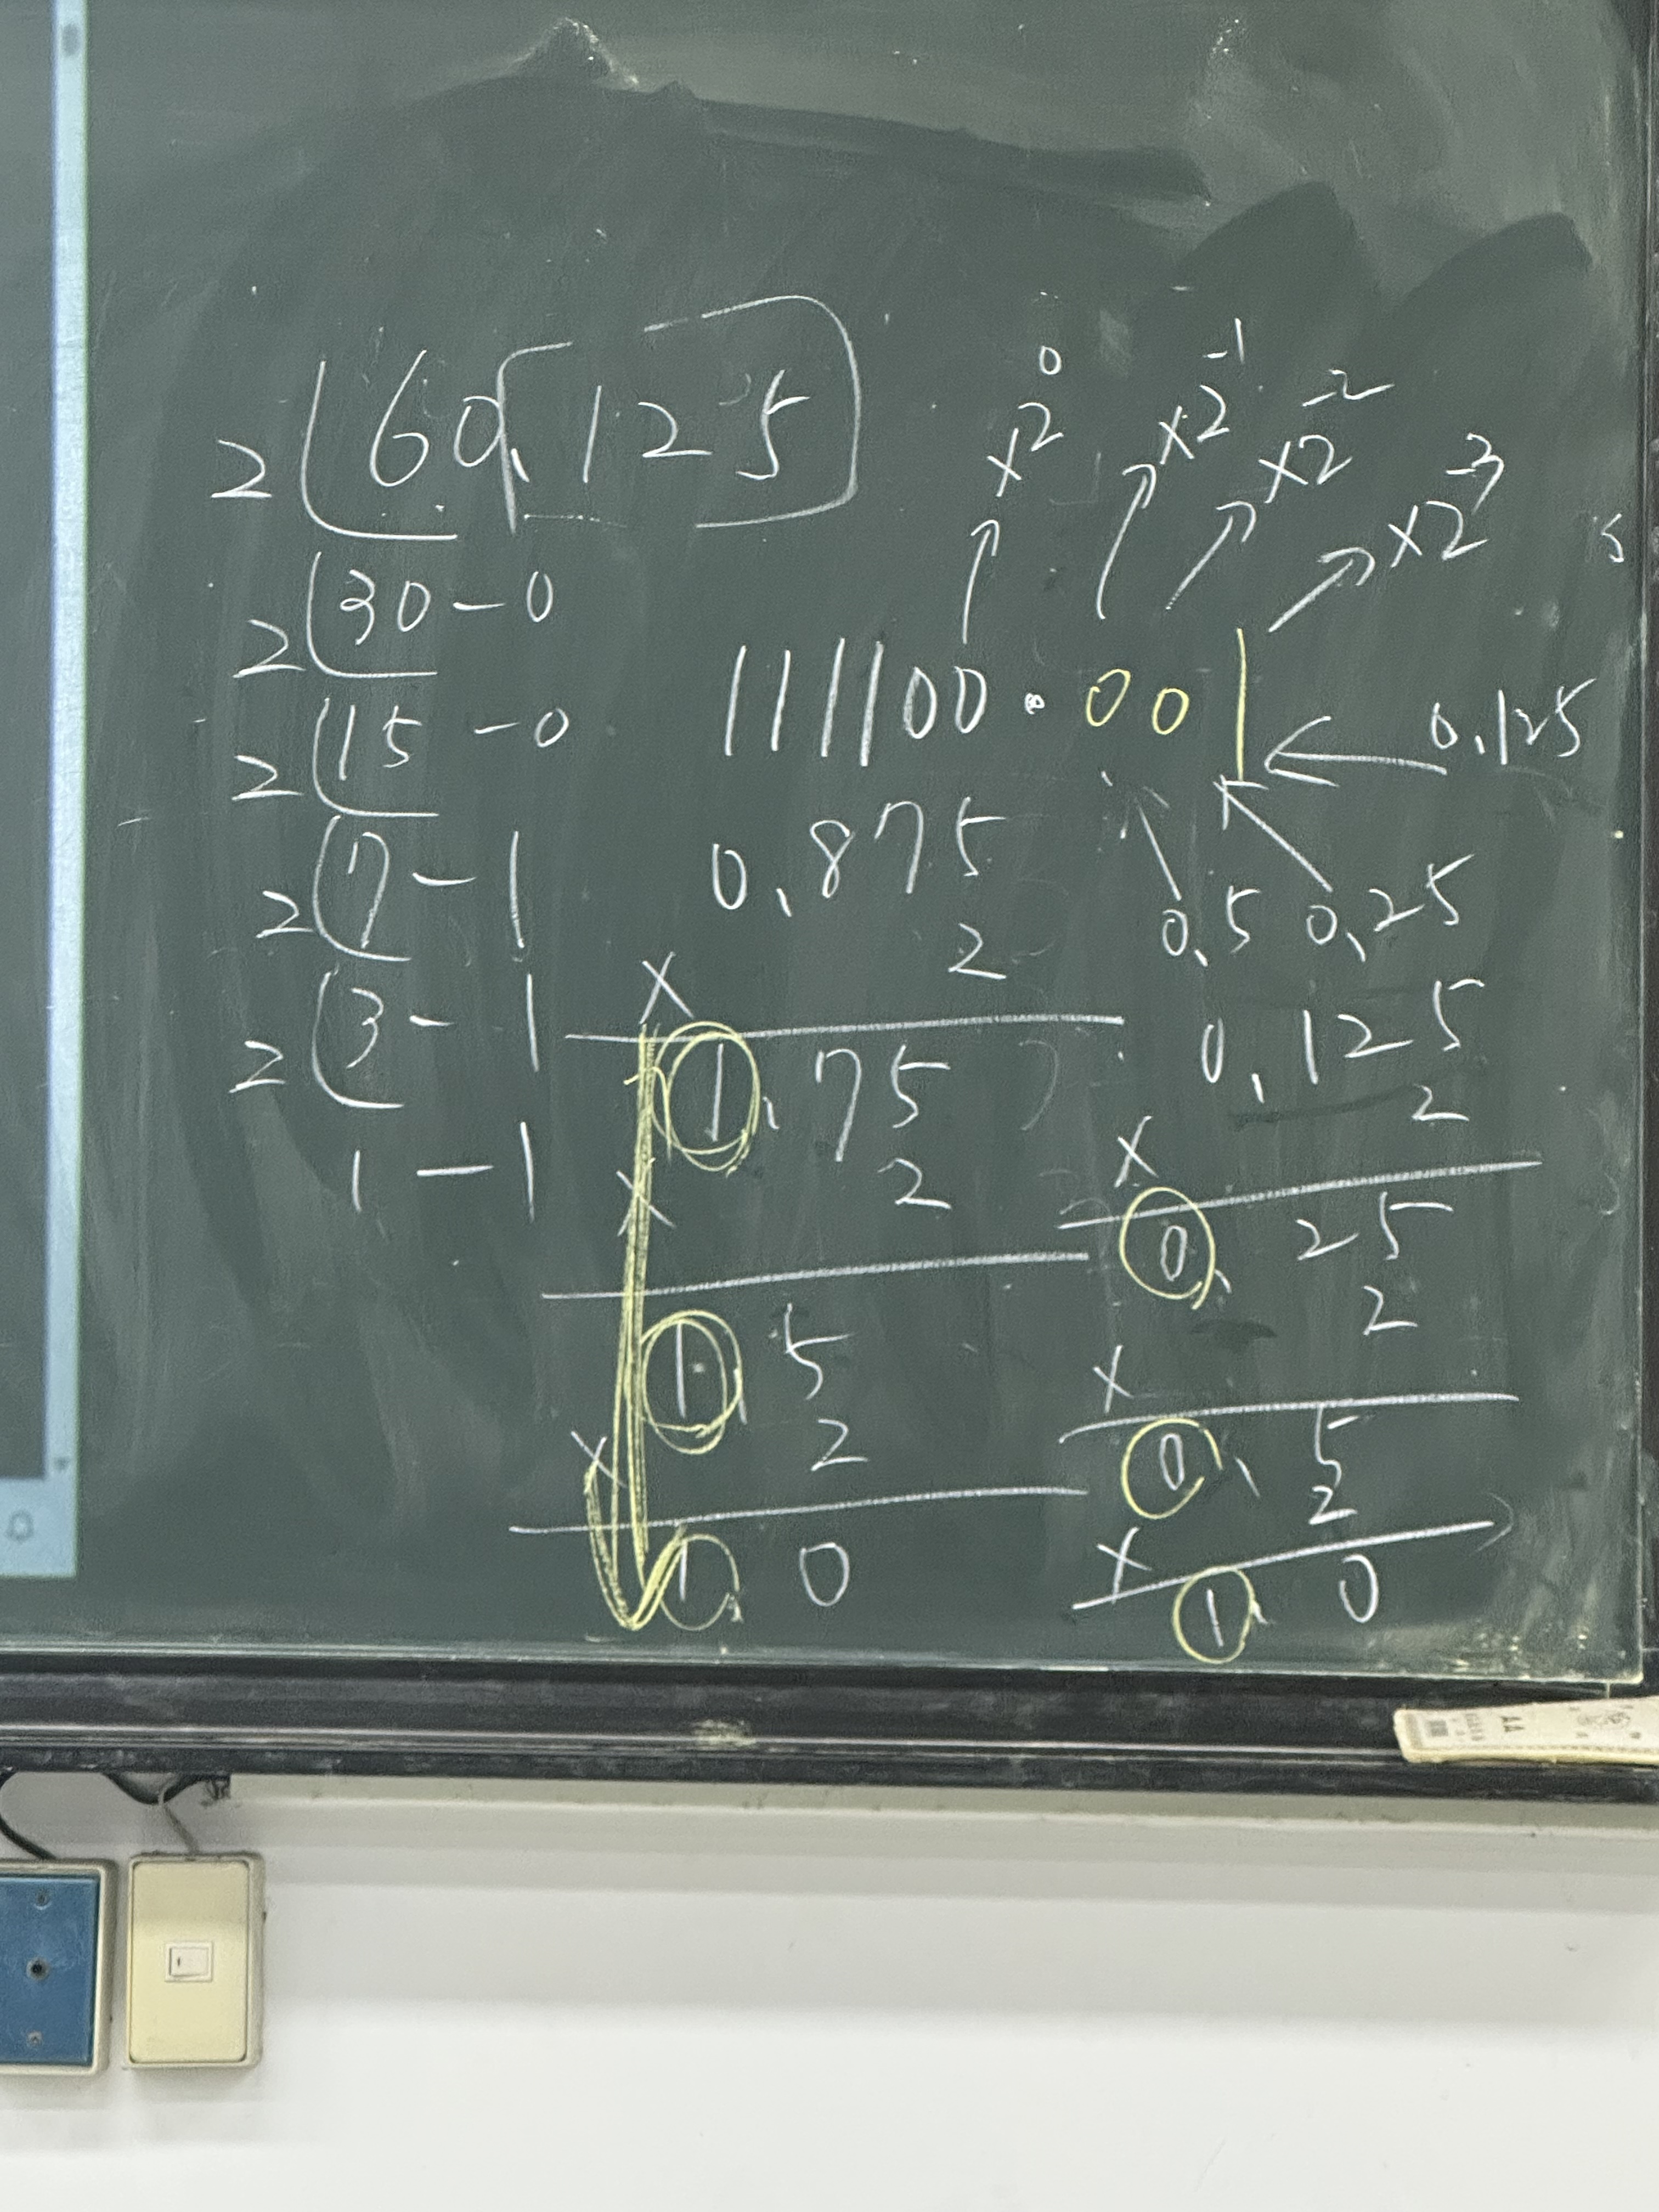 2 60.125
2 30 - 0
2 15 - 0
2 7 - 1
2 3 - 1
1 - 1
×2⁰ ×2⁻¹ ×2⁻² ×2⁻³
111100.001
0.125
0.5 0.25
0.875
× 2
1.75
× 2
1.5
× 2
1.0
0.125
× 2
0.25
× 2
0.5
× 2
1.0